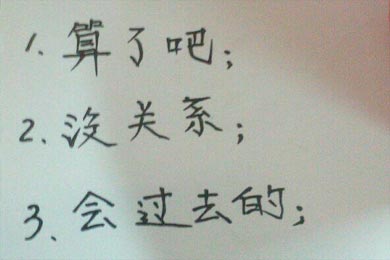 1. 算了吧;
2. 没关系;
3. 会过去的;